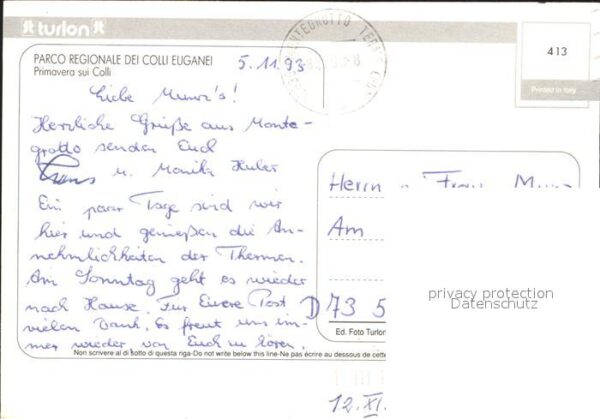 turlon
PARCO REGIONALE DEI COLLI EUGANEI
Primavera sui Colli
5.11.93
413
Printed in Italy
Liebe Munz's!
Herzliche Grüße aus Monte-
grotto senden Euch
u. Monika Huber
Ein paar Tage sind wir
hier und genießen die An-
nehmlichkeiten der Thermen.
Am Sonntag geht es wieder
nach Hause. Für Euere Post
vielen Dank. Es freut uns im-
mer wieder von Euch zu hören.
Herrn u. Frau Munz
Am
D 73 5
privacy protection
Datenschutz
Ed. Foto Turlon
Non scrivere al di sotto di questa riga-Do not write below this line-Ne pas écrire au dessous de cette
12.XI.
MONTEGROTTO TERME